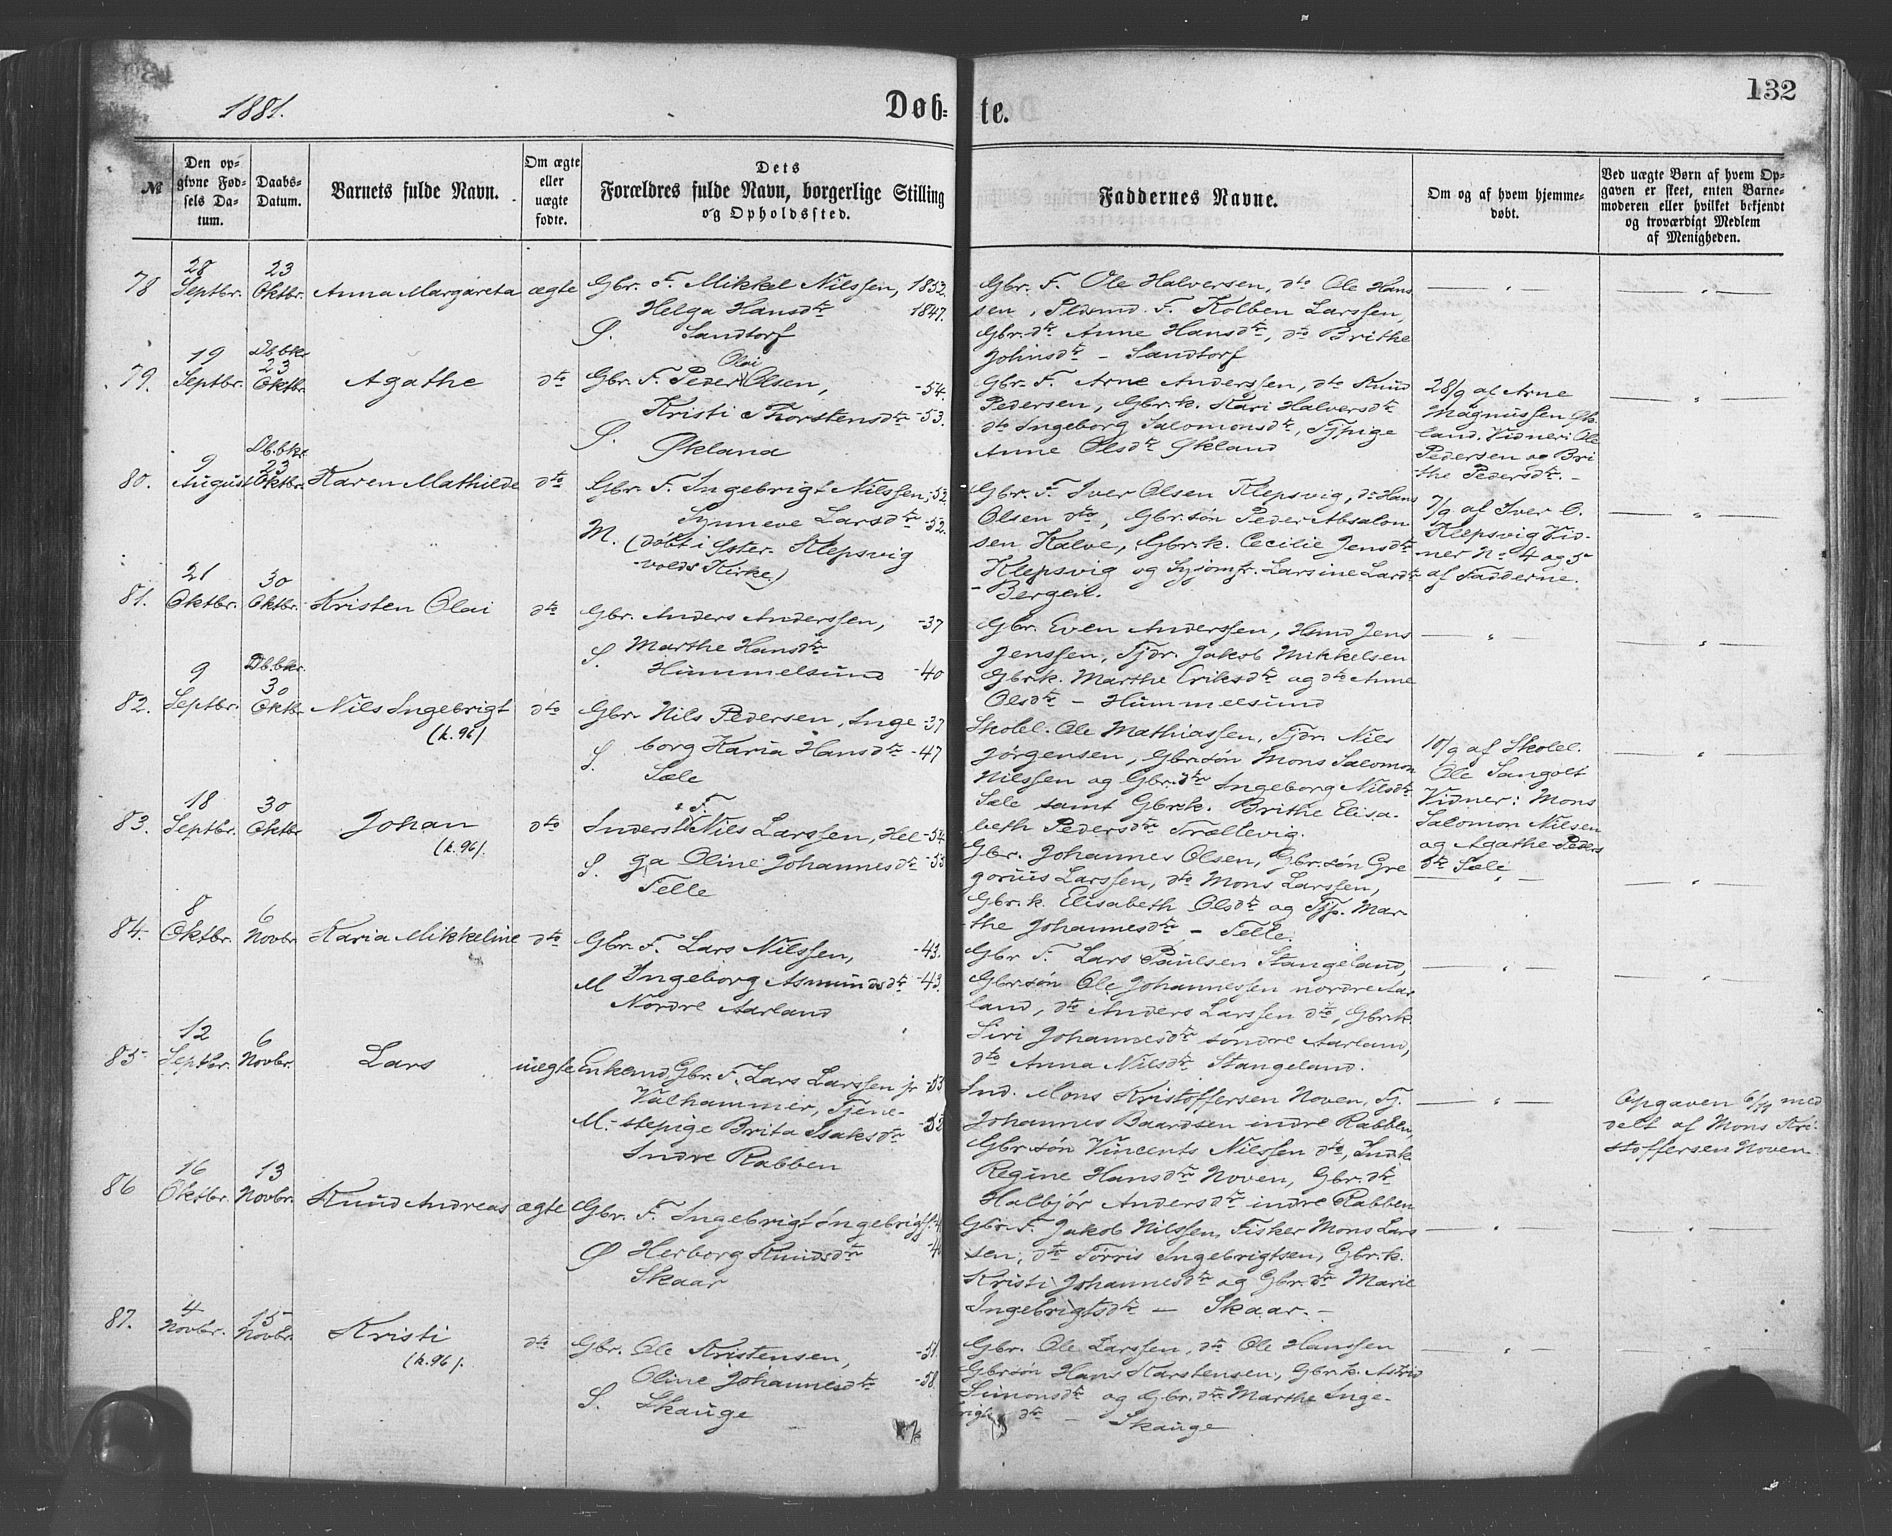 132
1881.
Døb-
te.
№
Den op-
givne Fød-
sels Da-
tum.
Daabs-
Datum.
Barnets fulde Navn.
Om ægte
eller
uægte
fødte.
Dets
Forældres fulde Navn, borgerlige Stilling
og Opholdssted.
Faddernes Navne.
Om og af hvem hjemme-
døbt.
Ved uægte Børn af hvem Op-
gaven er skeet, enten Barne-
moderen eller hvilket bekjendt
og troværdigt Medlem
af Menigheden.
78
28
Septbr.
23
Oktbr.
Anna Margareta
ægte
Gbr. F. Mikkel Nilssen, 1852.
Helga Hansdtr 1847.
S. Sandtorf
Gbr. F. Ole Halversen, dto Ole Hans
sen, F. Kolben Larssen,
Gbr.dtr Anne Hansdtr, dto Brithe
Johnsdtr – Sandtorf
79.
19
Septbr.
Db.bkr.
23
Oktbr.
Agathe
dto
Olai
Gbr. F. Peder Olsen, -54.
Kristi Thorstensdtr -53.
Ø. Økland
Gbr. F. Arne Anderssen, dto Knud
Pedersen, Gbr.k. Kari Halversdtr
dto Ingeborg Salomonsdtr, Tjpige
Anne Olsdtr Økland
28/9 af Arne
Magnussen Øk-
land. Vidner: Ole
Pedersen og Bri
the Pedersdtr. –
80.
9
August
Db.bkr.
23
Oktbr.
Karen Mathilde
dto
Gbr. F. Ingebrigt Nilssen, -52
Synneve Larsdtr -52.
M. (døbt i Øster- Klepsvig
volds Kirke)
Gbr. F. Iver Olsen Klepsvig, dto Hans
Olsen dto, Gbr.søn Peder Absalon
sen Kalve, Gbr.k. Cecilie Jensdtr
Klepsvig og Syjomfr. Larsine Larsdtr
– Bergen.
7/9 af Iver O.
Klepsvig Vid-
ner No 4 og 5
af Fadderne.
81.
21
Oktbr.
30
Oktbr.
Kristen Olai
dto
Gbr. Anders Anderssen, -37
S. Marthe Hansdtr
Hummelsund -40
Gbr. Even Anderssen, Hmd Jens
Jenssen, Tjdr. Jakob Mikkelsen
Gbrk. Marthe Eriksdtr og dto Anne
Olsdtr – Hummelsund
82.
9
Septbr.
Db.bkr.
30
Oktbr
Nils Ingebrigt
(k. 96)
dto
Gbr. Nils Pedersen, Inge -37
borg Karia Hansdtr -47
S. Sæle
Skolel. Ole Mathiassen, Tjdr. Nils
Jørgensen, Gbr.søn Mons Salomon
Nilssen og Gbr.dtr Ingeborg Nilsdtr
Sæle samt Gbr.k. Brithe Elisa-
beth Pedersdtr Trællevig.
10/9 af Skolel.
Ole Sangolt
Vidner: Mons
Salomon Nilsen
og Agathe Peders
dtr Sæle
83.
18
Septbr.
30
Oktbr
Johan
(k. 96).
dto
F.
Inderst Nils Larssen, Hel -54
ga Oline Johannesdtr -53
S. Telle
Gbr. Johannes Olsen, Gbr.søn Gre
gorius Larssen, dto Mons Larssen,
Gbr.k. Elisabeth Olsdtr og Tjp. Mar-
the Johannesdtr – Telle.
84.
8
Oktbr.
6
Novbr.
Karia Mikkeline
dto
Gbr. F. Lars Nilssen, -43.
M Ingeborg Asmundsdtr -43.
Nordre Aarland
Gbr F. Lars Paulsen Stangeland,
Gbr.søn Ole Johannessen nordre Aar
land, dto Anders Larssen dto, Gbr.k.
Siri Johannesdtr søndre Aarland,
dto Anna Nilsdtr Stangeland.
85
12
Septbr.
6
Novbr.
Lars
uægte
Enkemd Gbr. F. Lars Larssen jr -53
Valhammer, Tjene-
M. stepige Brita Isaksdtr -52
Indre Rabben
Ind. Mons Kristoffersen Noven, Tj.
Johannes Baardsen indre Rabben,
Gbr.søn Vincents Nilssen dto, Ind.k.
Regine Hansdtr Noven, Gbr.dtr
Halbjør Andersdtr indre Rabben
Opgaven 6/11 med
delt af Mons Kri-
stoffersen Noven
86
16
Oktbr.
13
Novbr.
Knud Andreas
ægte
Gbr. F. Ingebrigt Ingebrigts
Ø Herborg Knudsdtr
Skaar
Gbr. F. Jakob Nilssen, Fisker Mons Lars
sen, dto Tørris Ingebrigtsen, Gbr.k.
Kristi Johannesdtr og Gbr.dtr Marie
Ingebrigtsdtr – Skaar. –
87.
4
Novbr.
15
Novbr.
Kristi
(k. 96).
dto
Gbr. Ole Kristensen, -51.
Oline Johannesdtr -58.
S. Skauge
Gbr. Ole Larssen, dto Ole Hanssen
Gbr.søn Hans Karstensen, Gbr.k. Astrid
Simonsdtr og Gbr.dtr Marthe Inge-
brigts dtr – Skauge